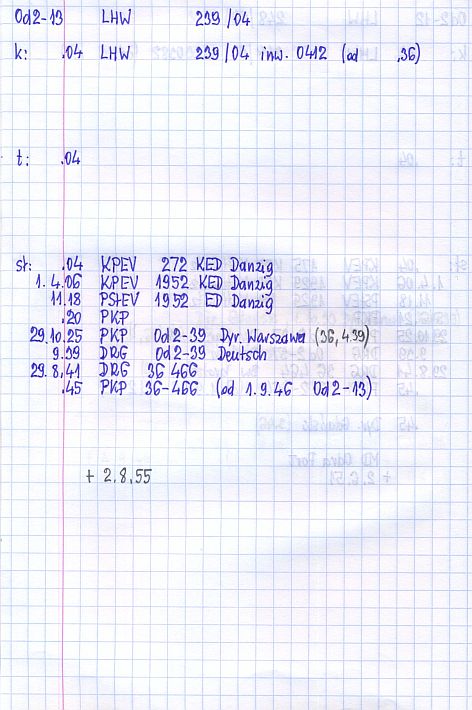 Od2-13 LHW 239/04
k: .04 LHW 239/04 inw. 0412 (od .36)
t: .04
st: .04 KPEV 272 KED Danzig
1.4.06 KPEV 1952 KED Danzig
11.18 PStEV 1952 ED Danzig
.20 PKP
29.10.25 PKP Od2-39 Dyr. Warszawa (36, 4.39)
9.39 DRG Od2-39 Deutsch
29.8.41 DRG 36 466
.45 PKP 36-466 (od 1.9.46 Od2-13)
+ 2.8.55